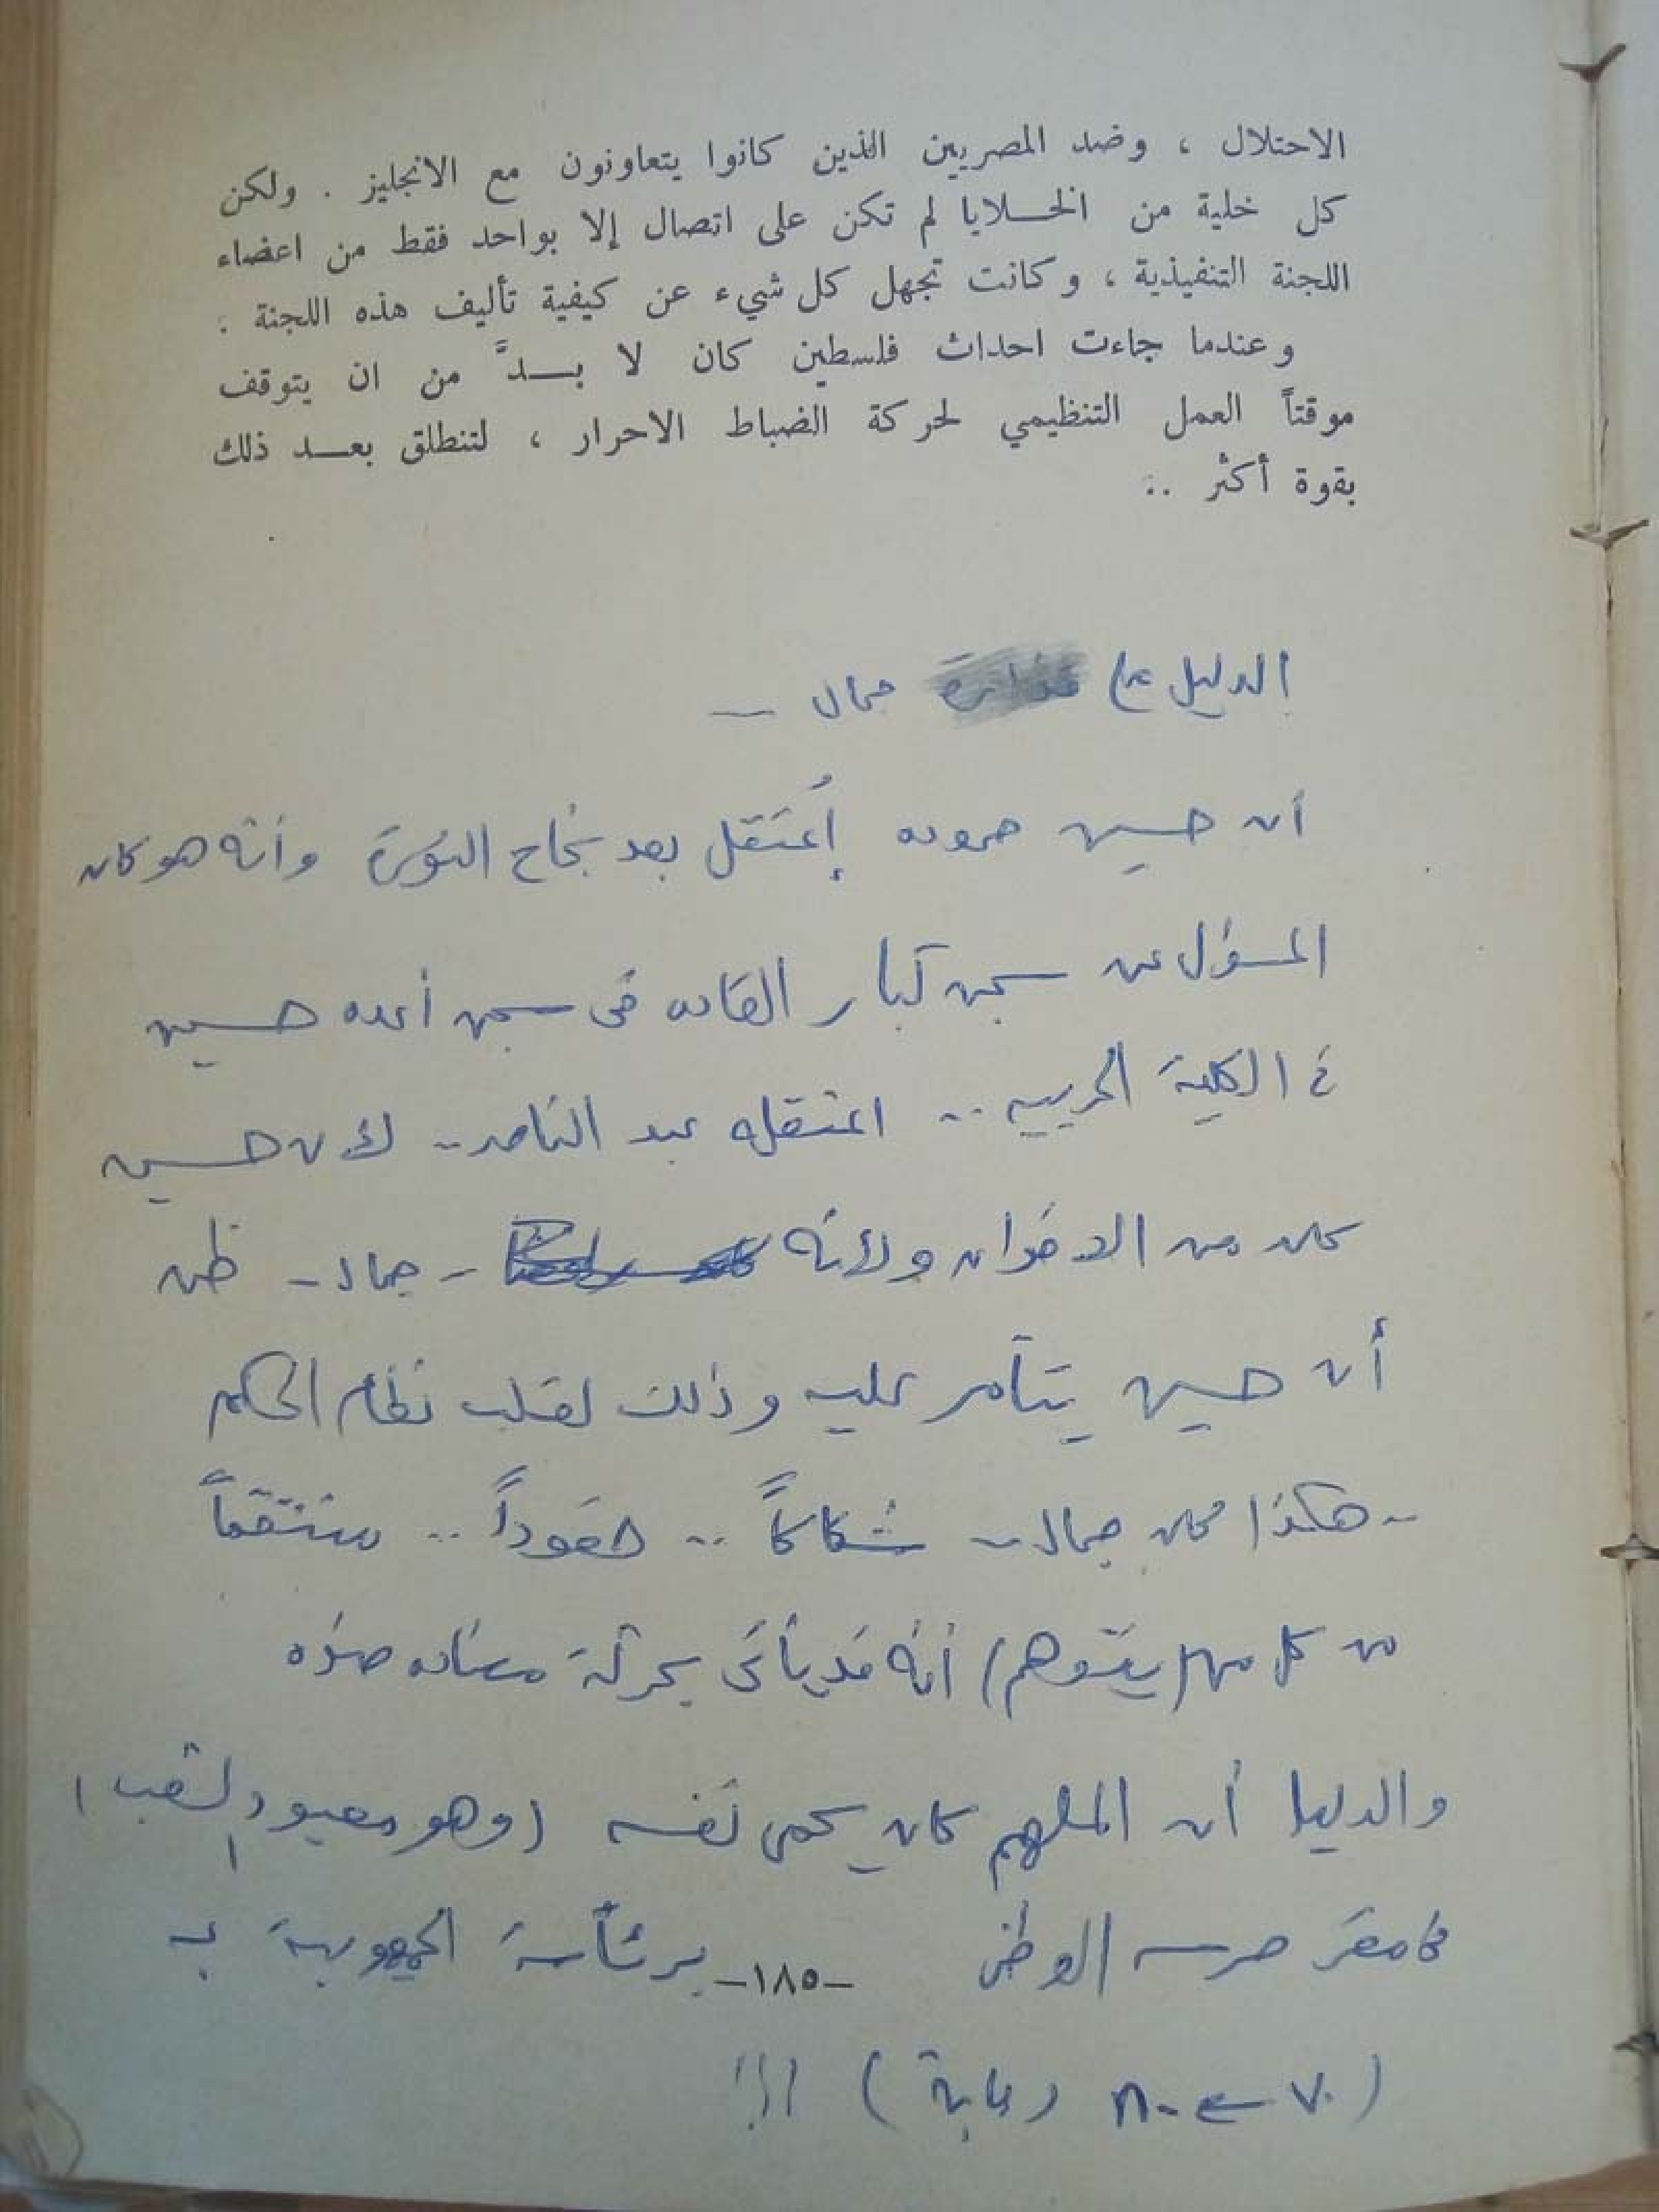 الاحتلال ، وضد المصريين الذين كانوا يتعاونون مع الانجليز . ولكن
كل خلية من الخـلايا لم تكن على اتصال إلا بواحد فقط من اعضاء
اللجنة التنفيذية ، وكانت تجهل كل شيء عن كيفية تأليف هذه اللجنة .
وعندما جاءت احداث فلسطين كان لا بـدَّ من ان يتوقف
موقتاً العمل التنظيمي لحركة الضباط الاحرار ، لتنطلق بعـد ذلك
بقوة أكثر ..
الدليل على جمال –
أن حسين حموده إُعتقل بعد نجاح الثورة وأنه هو كان
المسؤل عن سجن كبار القاده فى سجن أعده حسين
فى الكلية الحربيه .. اعتقله عبد الناصر .. لأن حسين
كان من الاخوان ولأنه - جمال - ظن
أن حسين يتآمر عليه وذلك لقلب نظام الحكم
- هكذا كان جمال - شكاكاً .. حقوداً .. منتقماً
من كل من (يتوهم) أنه قد يأتى بحركة مضاده ضده
والدليل أن الملهم كان يحمى نفسه (وهو معبود الشعب)
فى مقر حرس الوطنى برئآسة الجمهورية بـ
-١٨٥-
(٧٠ دبابة) !!!